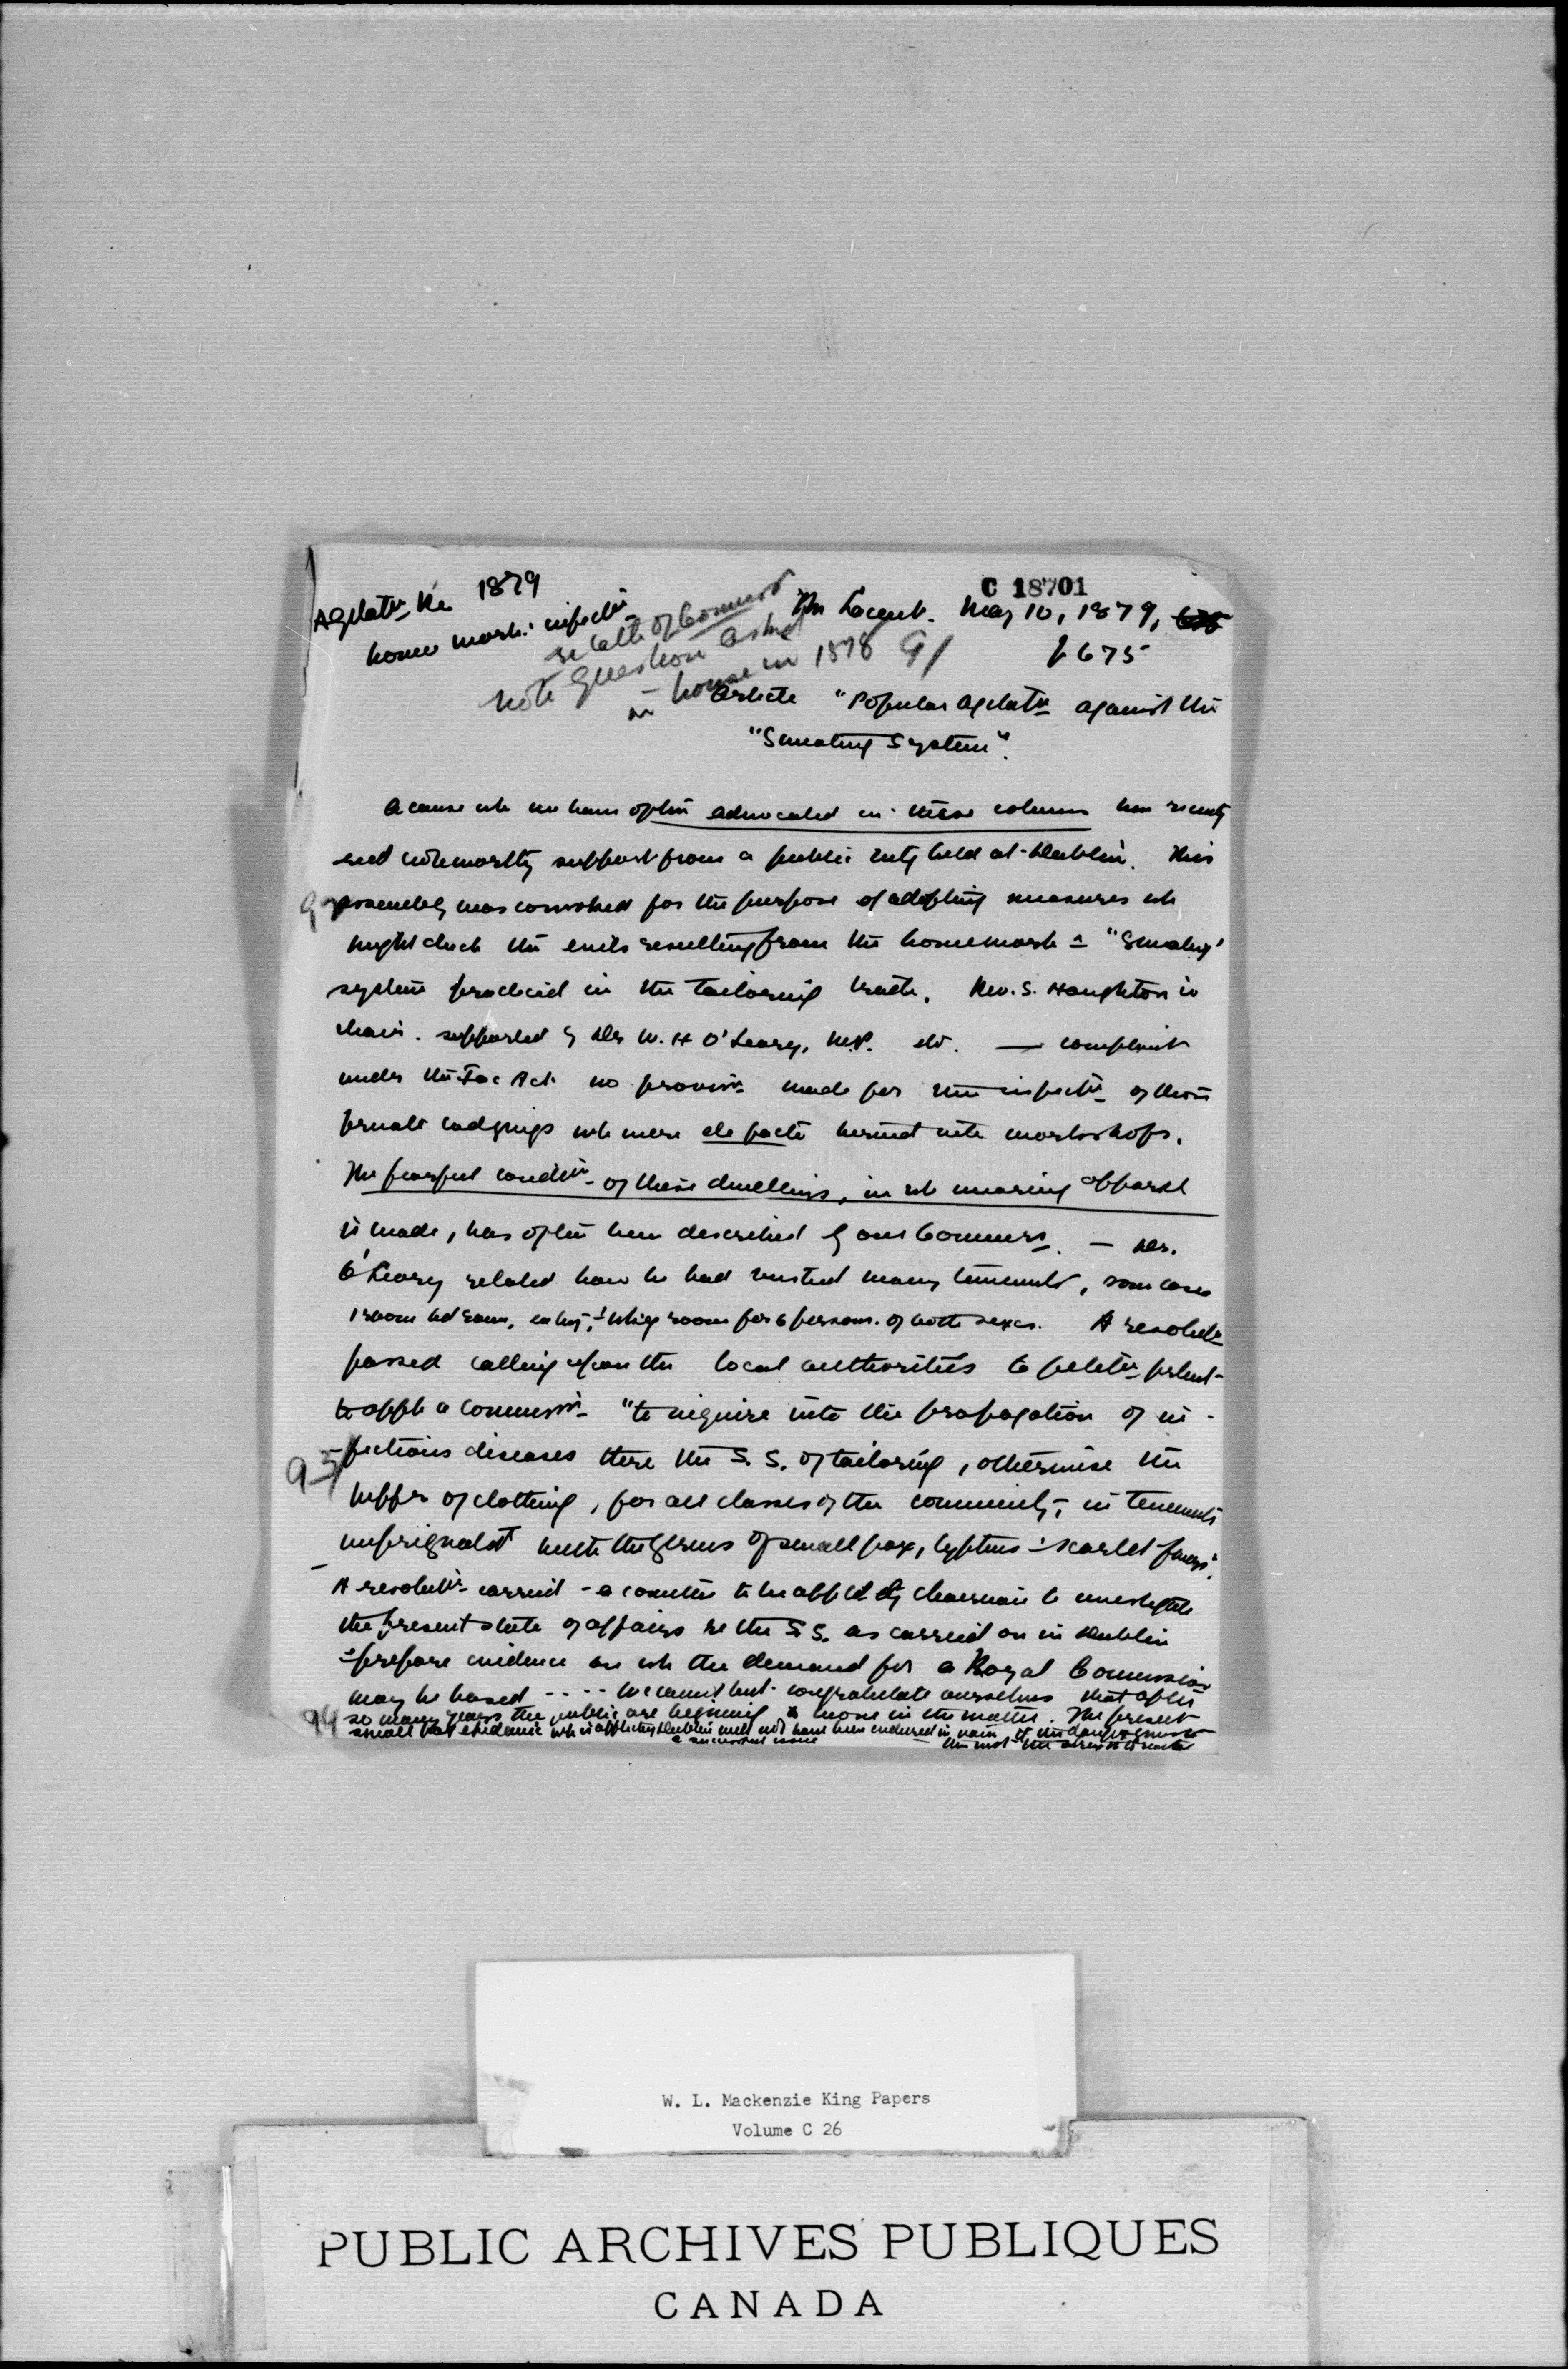 C 18701
Agitatn Re 1879
home work: inspectn
The Lancet. May 10, 1879,
p 675
note question asked
in house in 1878 91
Article "Popular Agitatn against the
"Sweating System".
A cause wh we have often advocated in these columns has recently
recd noteworthy support from a public mtg held at Dublin. This
assembly was convoked for the purpose of adopting measures wh
might check the evils resulting from the homework or "Sweating"
system practiced in the tailoring trade. Rev. S. Haughton in
chair. supported by Dr W. H O'Leary, M.P. etc. — complaint
under the Fac Act no provisn made for the inspectn of those
private lodgings wh were de facto turned into workshops.
The fearful conditn of these dwellings, in wh wearing apparel
is made, has often been described by our Commrs. — Dr.
O'Leary related how he had visited many tenements, some cases
1 room bed room, living room for 6 persons. of both sexes. A resolutn
passed calling upon the local authorities to petitn parlmt
to appt a commissn "to inquire into the propagation of in-
95 fectious diseases thro the S. S. of tailoring, otherwise the
of clothing, for all classes of the community, in tenements
impregnated with the germs of small pox, typhus & scarlet fever".
A resolutn carried - a comttee to be apptd by chairman to investigate
the present state of affairs re the S. S. as carried on in Dublin
& prepare evidence on wh the demand for a Royal Commission
may be based - - - - We cannot but congratulate ourselves that after
94 so many years the public are beginning to move in the matter. The present
small pox epidemic wh is afflicting Dublin will not have been endured in vain if
W. L. Mackenzie King Papers
Volume C 26
PUBLIC ARCHIVES PUBLIQUES
CANADA